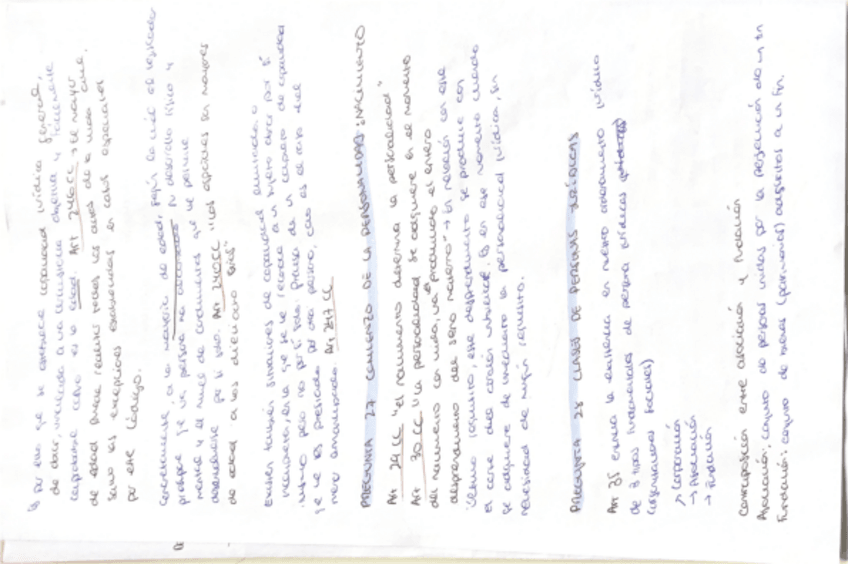 Es por ello que se establece capacidad jurídica general,
es decir, vinculada a una circunstancia objetiva y fácilmente
comprobable como es la edad. Art 246CC "El mayor
de edad puede realizar todos los actos de la vida civil,
salvo las excepciones establecidas en casos especiales
por este Código.
Concretamente, a la mayoría de edad, según la cual el legislador
presupone que la persona ha alcanzado su desarrollo físico y
mental y el nivel de conocimientos que le permite
desenvolverse por sí solo. Art 240CC "Los españoles son mayores
de edad a los dieciocho años"
Existen también situaciones de capacidad
en la que se le reconoce a un sujeto obrar por sí
mismo pero no por sí solo. Precisa de un complemento de capacidad
que le es prestado por otra persona, caso es el caso del
menor emancipado. Art 247 CC
PREGUNTA 27 COMIENZO DE LA PERSONALIDAD: NACIMIENTO
Art 29 CC "El nacimiento determina la personalidad"
Art 30 CC "La personalidad se adquiere en el momento
del nacimiento con vida, una vez producido el entero
desprendimiento del seno materno" → En relación con este
último requisito, este desprendimiento se produce con
el corte del cordón umbilical. Es en ese momento cuando
se adquiere la personalidad jurídica, sin
necesidad de ningún requisito.
PREGUNTA 28 CLASES DE PERSONAS JURÍDICAS
Art 35 señala la existencia en nuestro ordenamiento jurídico
de 3 tipos fundamentales de persona jurídicas
(organizaciones sociales)
→ Corporación
→ Asociación
→ Fundación
Contraposición entre asociación y fundación
Asociación: conjunto de personas unidas por la persecución de un fin
Fundación: conjunto de bienes (patrimonio) adscritos a un fin.